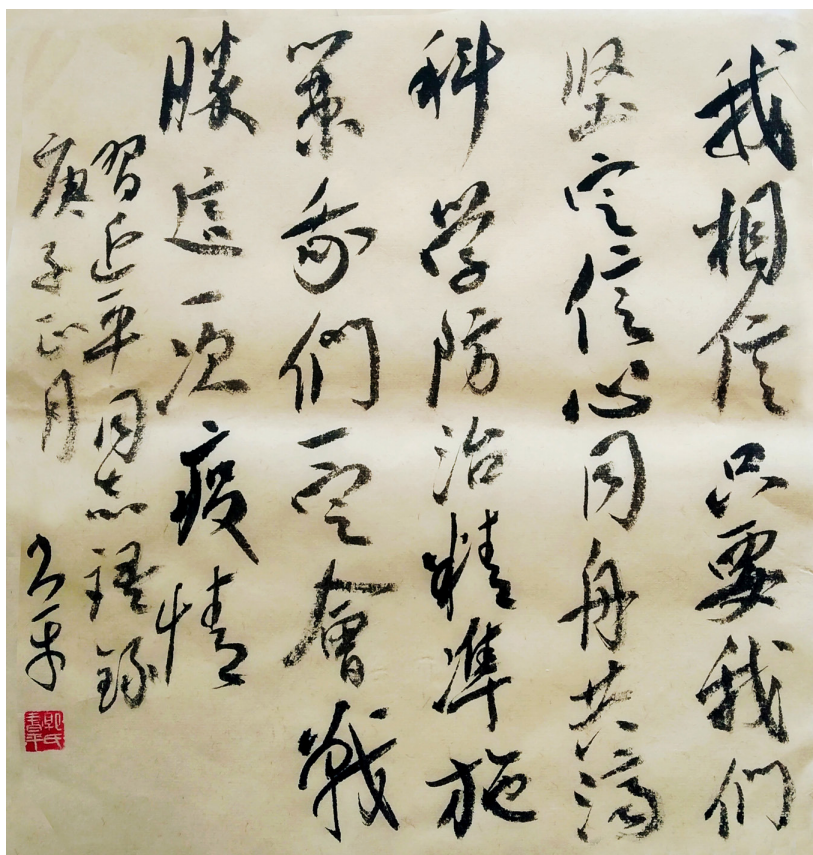 我相信只要我们
坚定信心同舟共济
科学防治精準施
策我們一定會戰
勝這一次疫情
習近平同志語錄
庚子正月